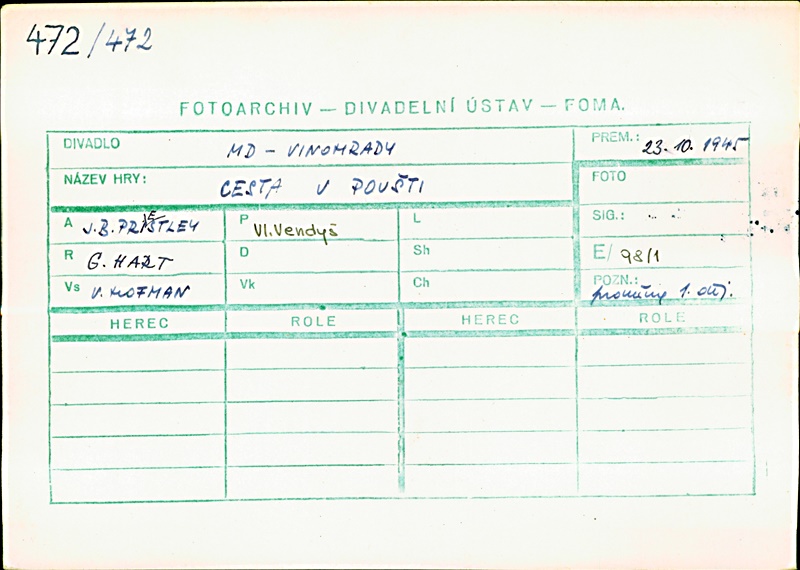 472/472
FOTOARCHIV — DIVADELNÍ ÚSTAV — FOMA.
DIVADLO MD - VINOHRADY PREM.: 23.10.1945
NÁZEV HRY: CESTA V POUŠTI FOTO
A J.B.PRIESTLEY P Vl.Vendyš L SIG.:
R G. HART D Sh E/ 98/1
Vs V. HOFMAN Vk Ch POZN.: proměny 1. děj.
HEREC ROLE HEREC ROLE